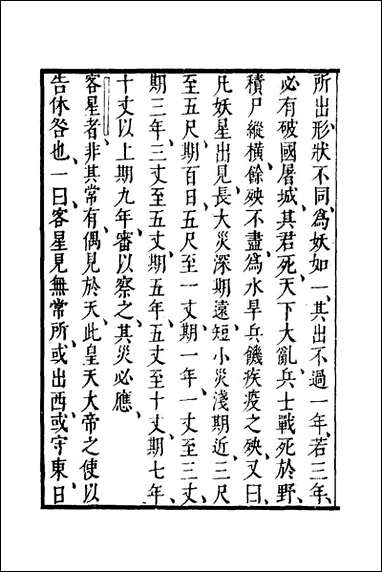 所出形狀不同、為妖如一、其出不過一年、若三年、
必有破國屠城、其君死、天下大亂、兵士戰死於野、
積尸縱橫、餘殃不盡、為水旱兵饑疾疫之殃、又曰、
凡妖星出見、長大災深期遠、短小災淺期近、三尺
至五尺期百日、五尺至一丈期一年、一丈至三丈
期三年、三丈至五丈期五年、五丈至十丈期七年、
十丈以上期九年、審以察之、其災必應、
客星者、非其常有、偶見於天、此皇天大帝之使、以
告休咎也、一曰、客星見無常所、或出西、或守東、日